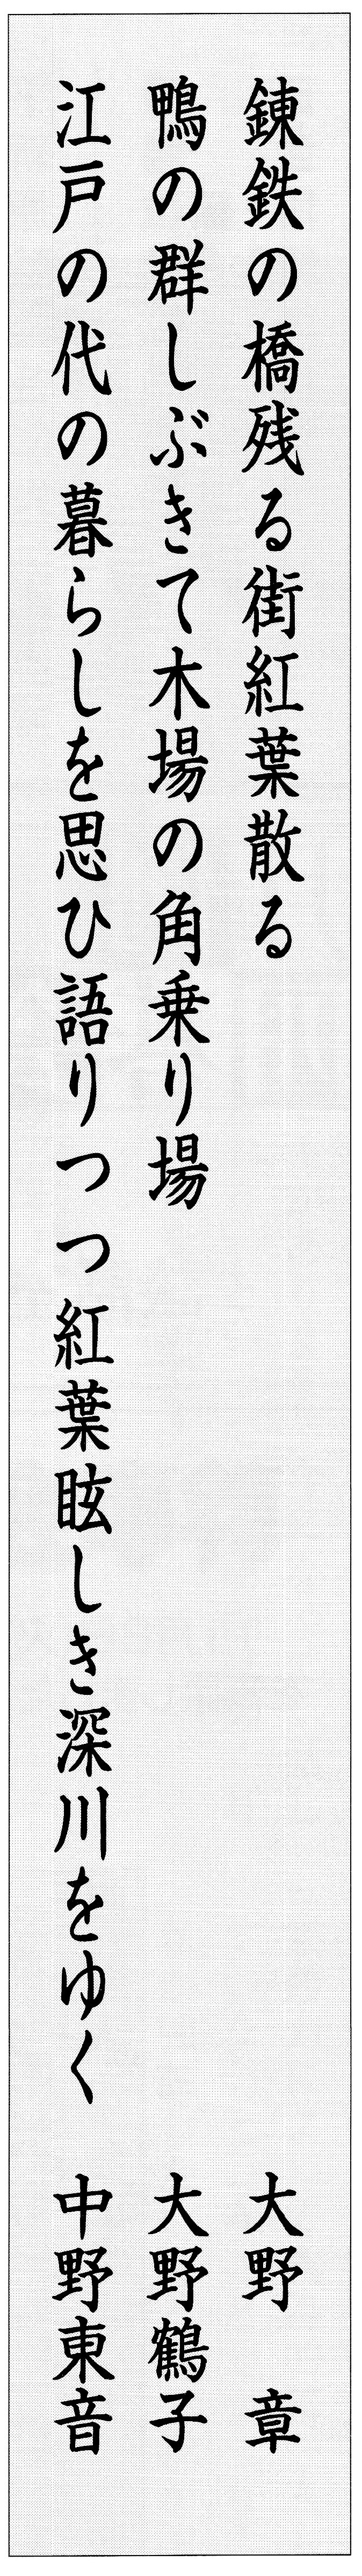 錬鉄の橋残る街紅葉散る　大野　章
鴨の群しぶきて木場の角乗り場　大野鶴子
江戸の代の暮らしを思ひ語りつつ紅葉眩しき深川をゆく　中野東音